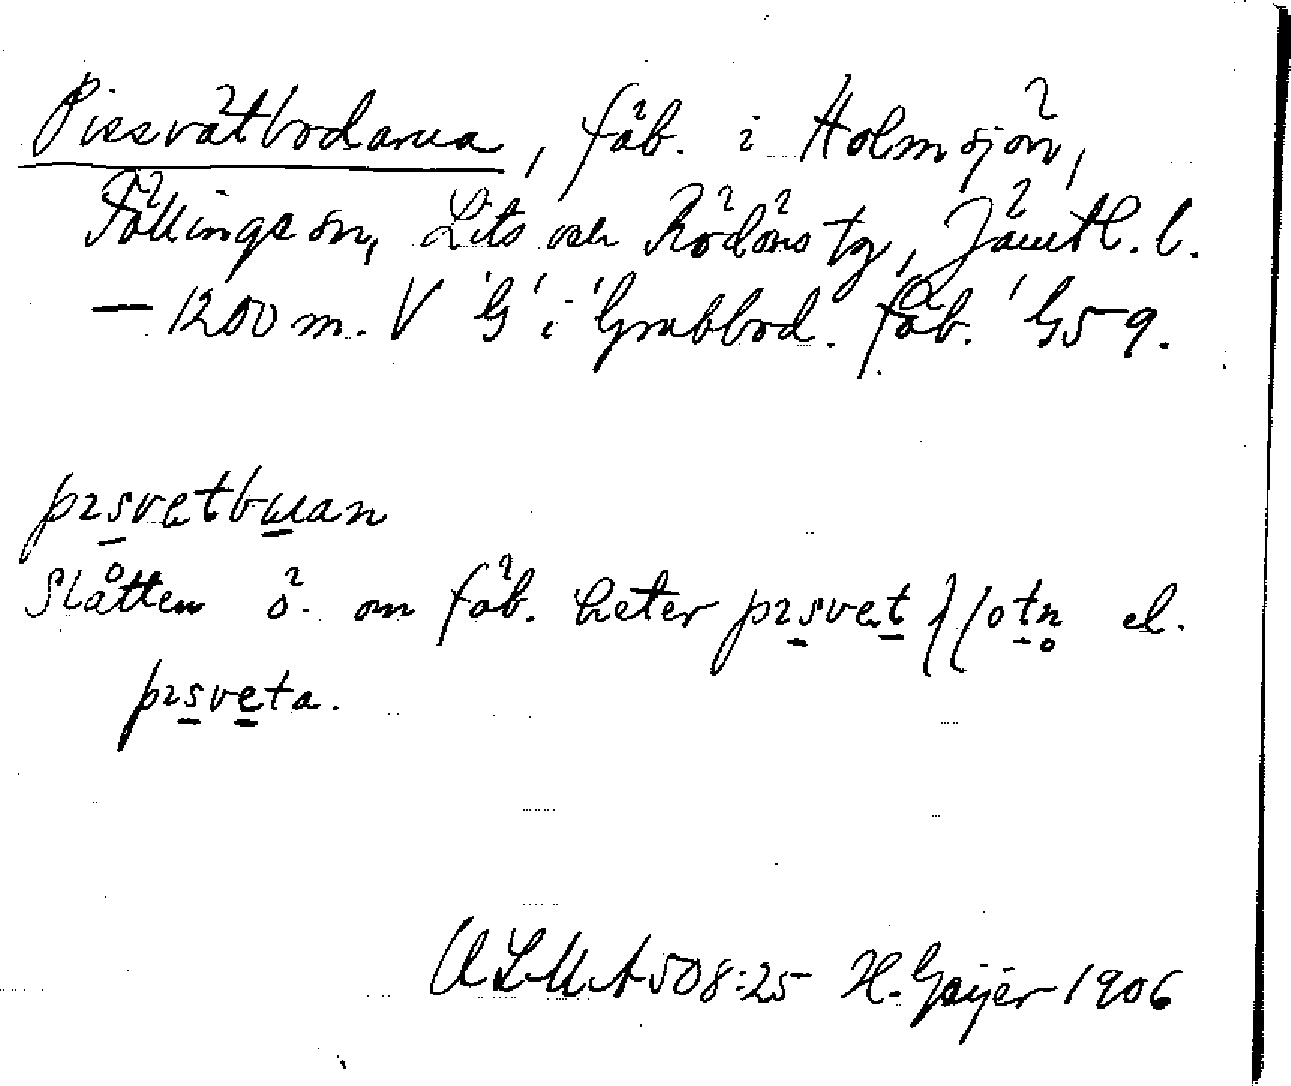 Pissvätbodarna, fäb. i Holmsjön,
Föllinge sn, Lits och Rödöns tg, Jämtl. l.
— 1200 m. V 'G' i 'Grubbod. fäb.' G5 9.
pısvetbuan
Slåtten ö. om fäb. heter pısvet ſſotn̥ el.
pısveta.
ULMA 508:25 H. Geijer 1906